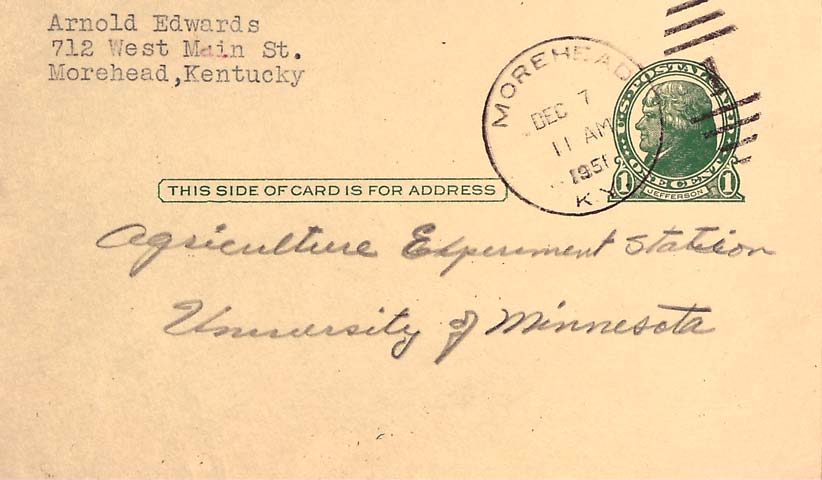 Arnold Edwards
712 West Main St.
Morehead,Kentucky
MOREHEAD
DEC 7
11 AM
1951
KY
U.S. POSTAGE
ONE CENT
1 JEFFERSON 1
THIS SIDE OF CARD IS FOR ADDRESS
Agriculture Experiment Station
University of Minnesota